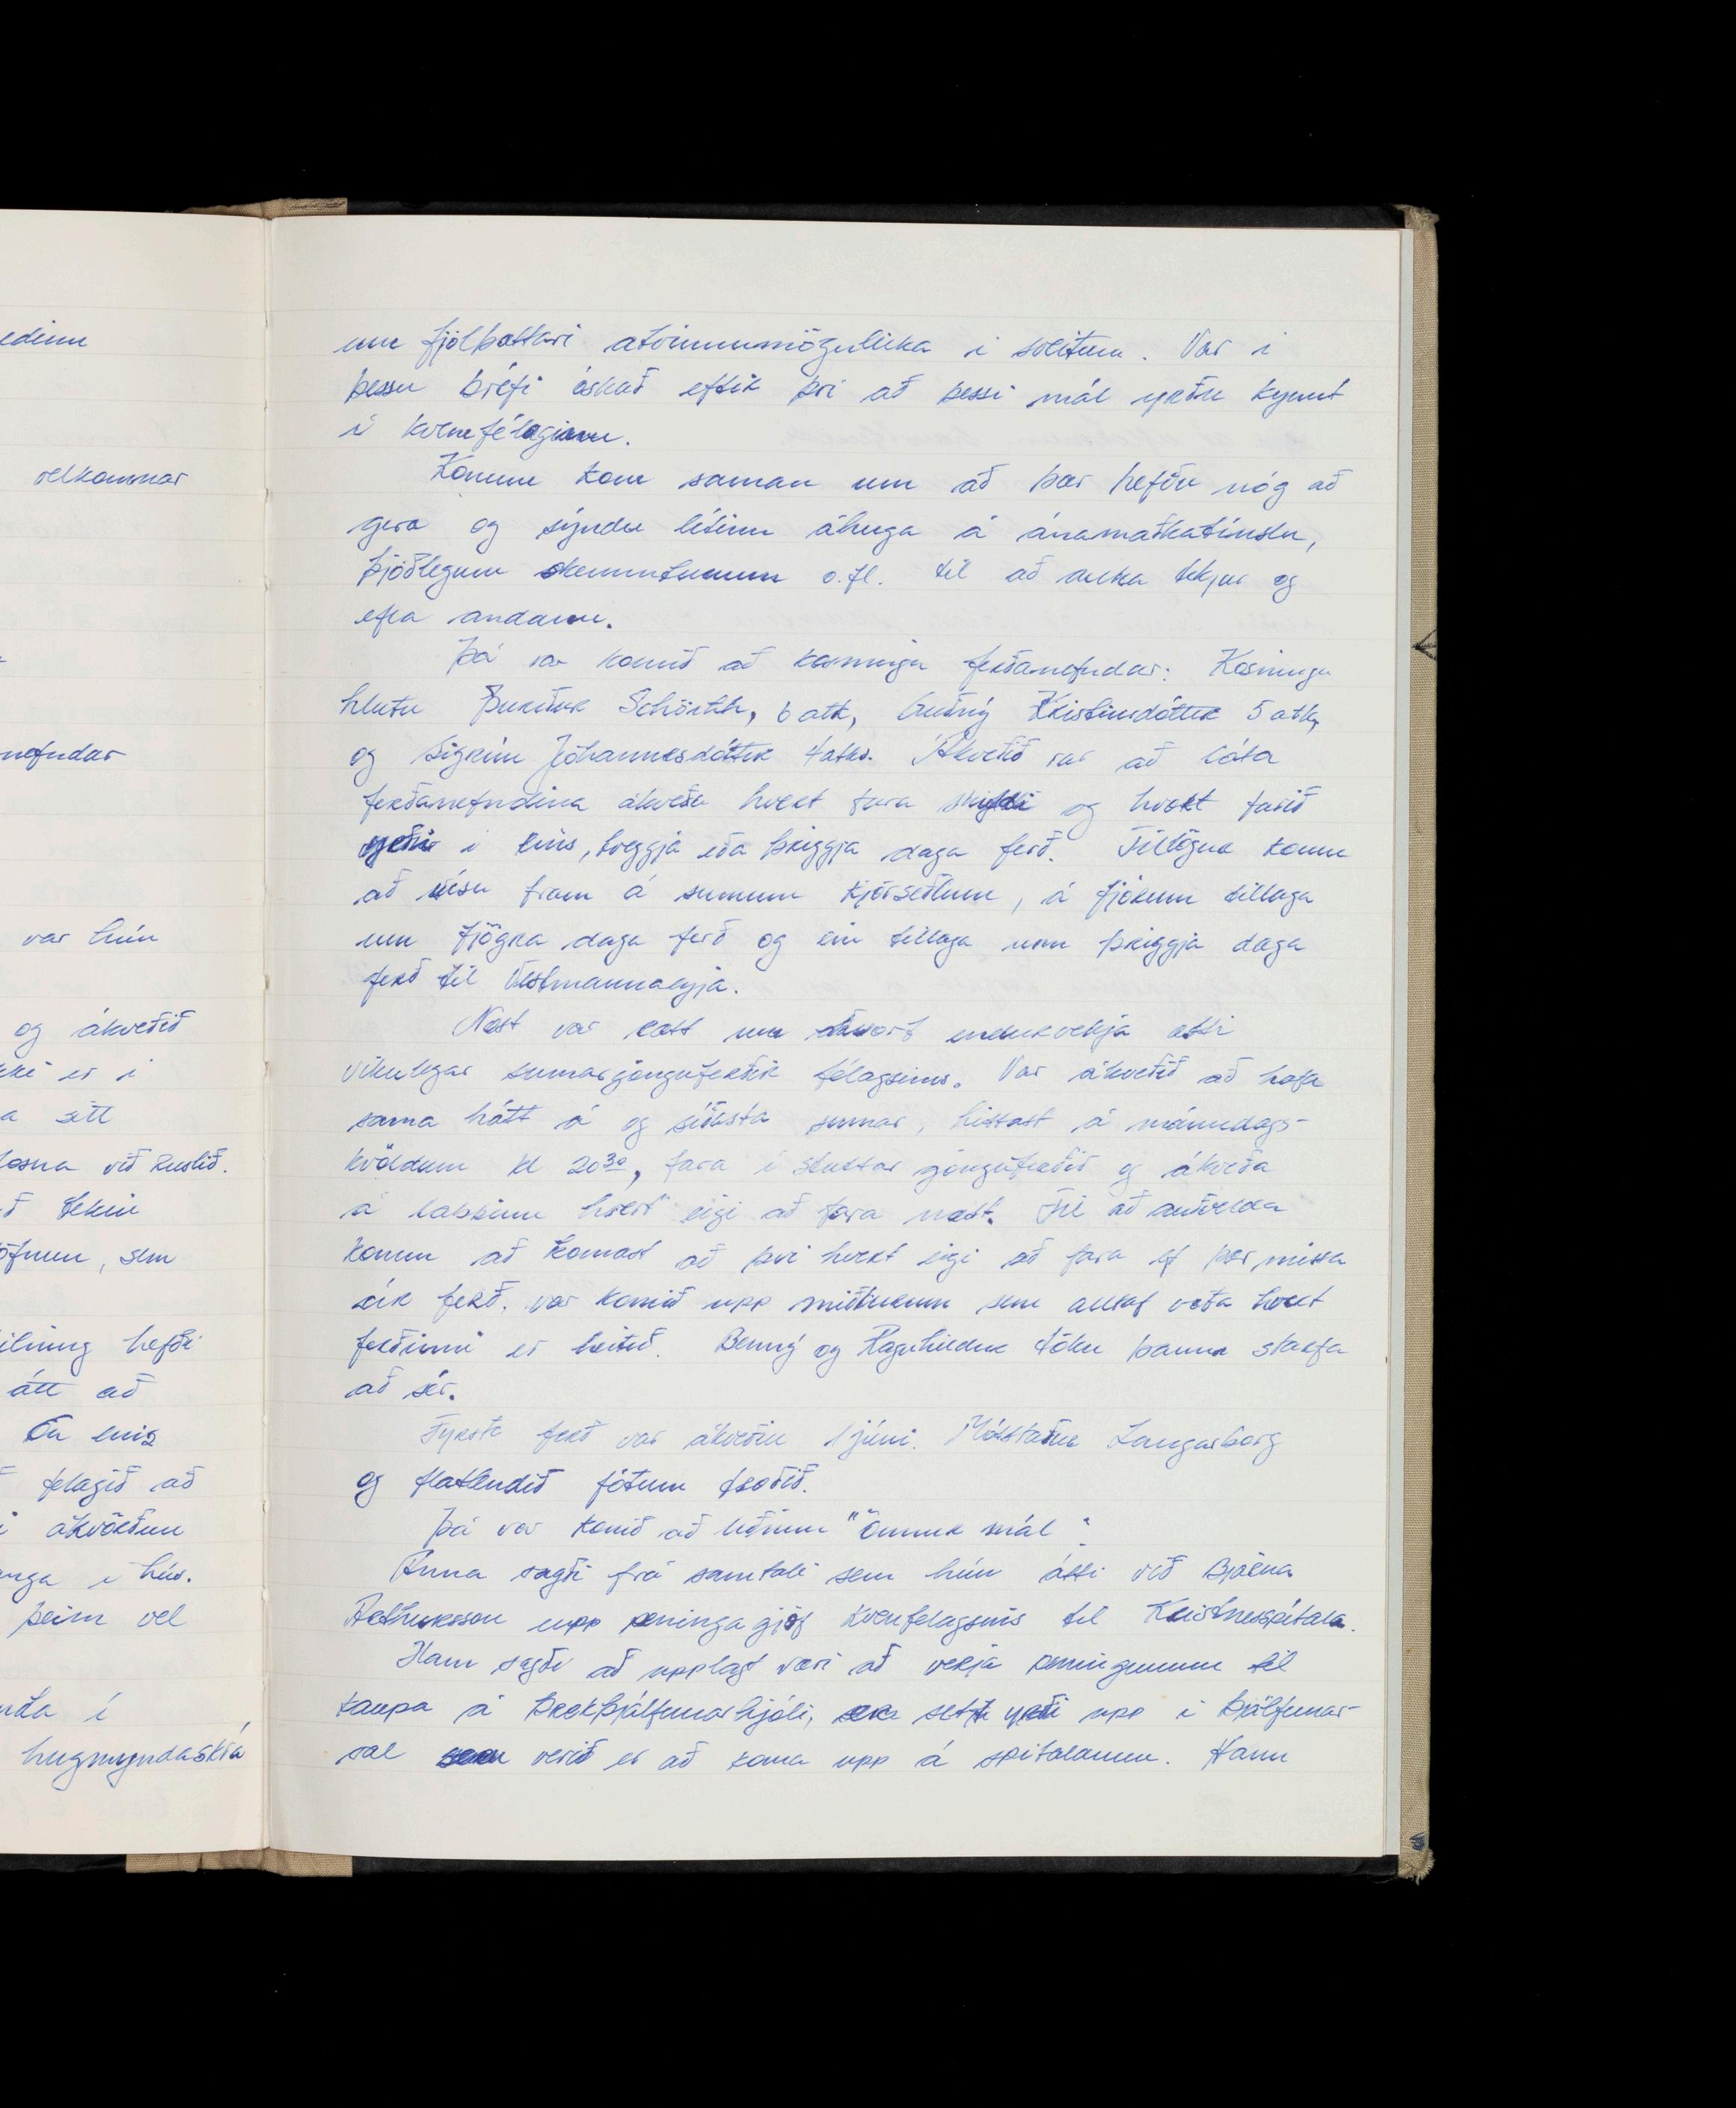 edinn
velkomnar
nefndar
var hún
og ákveðið
ki er í
a sitt
losna við ruslið.
ð tekin
öfnun, sem
ilning hefði
átt að
En eins
félagið að
i ákvörðun
nga í hús.
þeim vel
nda í
hugmyndaskrá
um fjölþættari atvinnumöguleika í sveitum. Var í
þessu bréfi óskað eftir því að þessi mál yrðu kynnt
í kvenfélaginu.
Konum kom saman um að þær hefðu nóg að
gera og sýndu lítinn áhuga á ánamaðkatínslu,
þjóðlegum skemmtunum o.fl. til að auka tekjur og
efla andann.
Þá var komið að kosningu ferðanefndar: Kosningu
hlutu Þuríður Schiöth, 6 atk, Guðný Kristinsdóttir 5 atk,
og Sigrún Jóhannesdóttir 4 atkv. Ákveðið var að láta
ferðanefndina ákveða hvert fara skyldi og hvort farið
yrði í eins, tveggja eða þriggja daga ferð. Tillögur komu
að vísu fram á sumum kjörseðlum, á fjórum tillaga
um fjögra daga ferð og ein tillaga um þriggja daga
ferð til Vestmannaeyja.
Næst var rætt um hvort endurvekja ætti
vikulegar sumargönguferðir félagsins. Var ákveðið að hafa
sama hátt á og síðasta sumar, hittast á mánudags-
kvöldum kl 20³⁰, fara í stuttar gönguferðir og ákveða
á labbinu hvert eigi að fara næst. Til að auðvelda
konum að komast að því hvert eigi að fara ef þær missa
úr ferð. var komið upp miðlurum sem alltaf vita hvert
ferðinni er heitið. Benný og Ragnhildur tóku þann starfa
að sér.
Fyrsta ferð var ákveðin 1 júní. Mætstaður Laugarborg
og flatlendið fótum troðið.
Þá var komið að liðnum "Önnur mál"
Anna sagði frá samtali sem hún átti við Bjarna
Arthursson upp peningagjöf kvenfélagsins til Kristnesspítala.
Hann sagði að upplagt væri að verja peningunum til
kaupa á þrekþjálfunarhjóli, sem sett yrði upp í þjálfunar-
sal sem verið er að koma upp á spítalanum. Hann